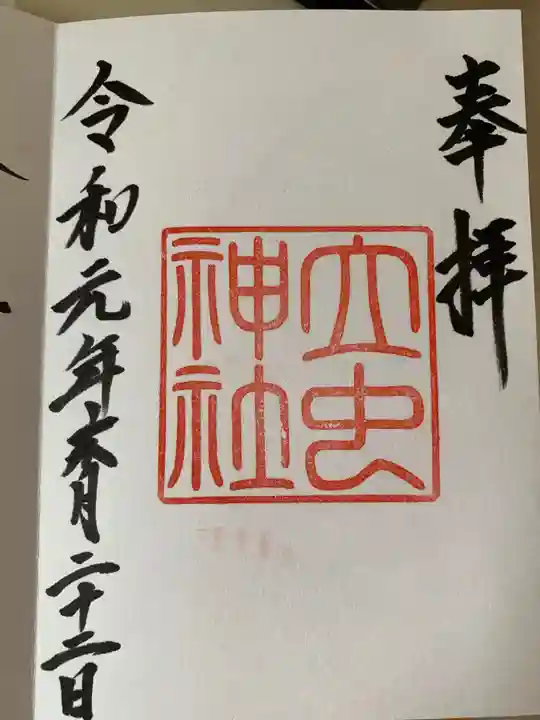 奉拝
大虫
神社
令和元年六月二十二日